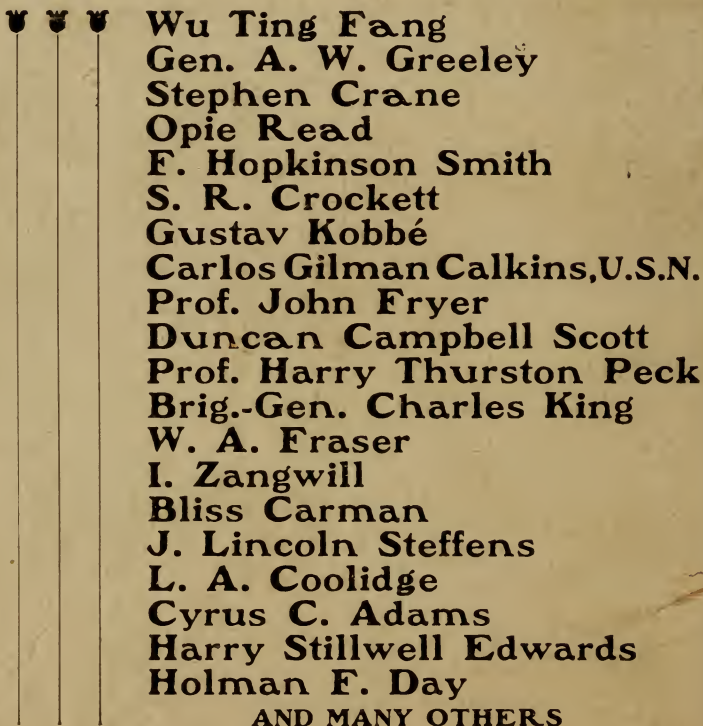 Wu Ting Fang
Gen. A. W. Greeley
Stephen Crane
Opie Read
F. Hopkinson Smith
S. R. Crockett
Gustav Kobbé
Carlos Gilman Calkins, U.S.N.
Prof. John Fryer
Duncan Campbell Scott
Prof. Harry Thurston Peck
Brig.-Gen. Charles King
W. A. Fraser
I. Zangwill
Bliss Carman
J. Lincoln Steffens
L. A. Coolidge
Cyrus C. Adams
Harry Stillwell Edwards
Holman F. Day
AND MANY OTHERS